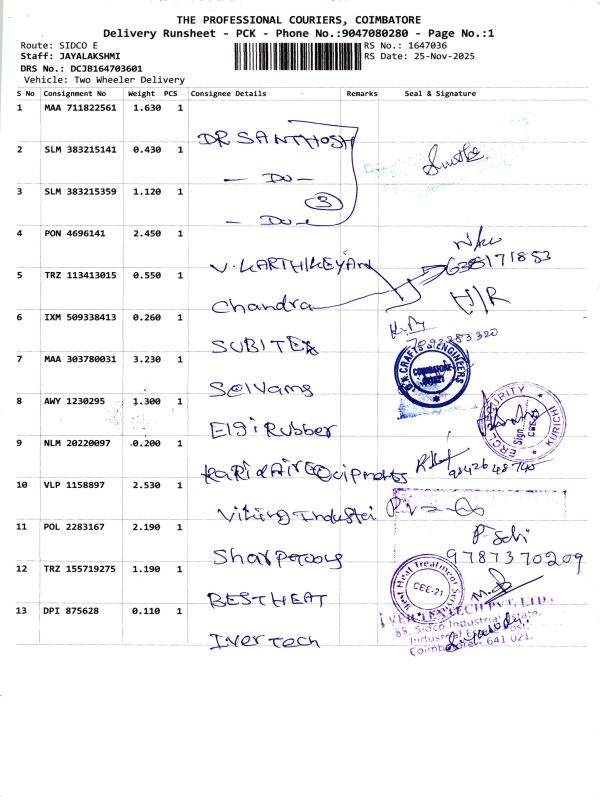 THE PROFESSIONAL COURIERS, COIMBATORE
Delivery Runsheet - PCK - Phone No.:9047080280 - Page No.:1
Route: SIDCO E
RS No.: 1647036
Staff: JAYALAKSHMI
RS Date: 25-Nov-2025
DRS No.: DCJB164703601
Vehicle: Two Wheeler Delivery
S No Consignment No Weight PCS Consignee Details Remarks Seal & Signature
1 MAA 711822561 1.630 1
DR SANTHOSH
2 SLM 383215141 0.430 1
- Do -
3 SLM 383215359 1.120 1
3
- Do -
4 PON 4696141 2.450 1
V. KARTHIKEYAN
638171853
5 TRZ 113413015 0.550 1
Chandra
H/R
6 IXM 509338413 0.260 1
7092383320
SUBITEX
7 MAA 303780031 3.230 1
CRAFTS & ENGINEERS
COIMBATORE
Selvams
8 AWY 1230295 1.300 1
SECURITY
ERCL
KURICHI
Sign
Elgi Rubber
9 NLM 20220097 0.200 1
Kavid Air Equipments
98426 48740
10 VLP 1158897 2.530 1
Viking Industri
11 POL 2283167 2.190 1
9787370209
12 TRZ 155719275 1.190 1
Heat Treatment
CEE-21
BEST HEAT
13 DPI 875628 0.110 1
IVERTECH PVT. LTD.
88, Sidco Industrial Estate,
Industrial Estate Post,
Coimbatore - 641 021.
Iver Tech